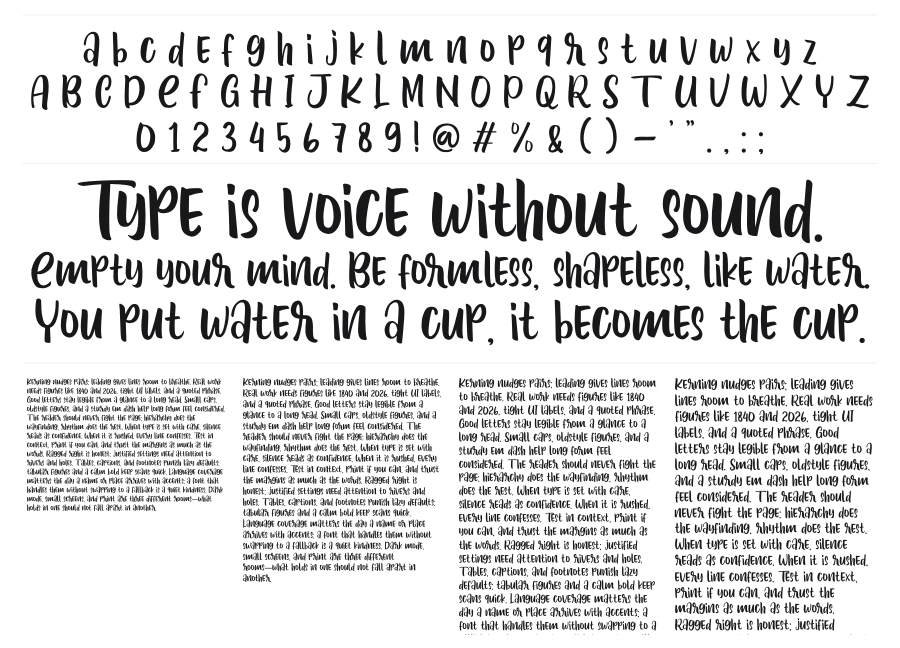 a b c d E f g h i j k l m n o p q r s t u v w x y z
A B C D e f G H I J K L M N O P Q R S T U V W X Y Z
0 1 2 3 4 5 6 7 8 9 ! @ # % & ( ) – ' " . , ; :
TYPE is voice without sound.
Empty your mind. Be formless, shapeless, like water.
You put water in a cup, it becomes the cup.
Kerning nudges pairs; leading gives lines room to breathe. Real work
needs figures like 1840 and 2026, tight UI labels, and a quoted phrase.
Good letters stay legible from a glance to a long read. Small caps,
oldstyle figures, and a sturdy em dash help long form feel considered.
The reader should never fight the page; hierarchy does the
wayfinding, rhythm does the rest. When type is set with care, silence
reads as confidence. When it is rushed, every line confesses. Test in
context, print if you can, and trust the margins as much as the
words. Ragged right is honest; justified settings need attention to
rivers and holes. Tables, captions, and footnotes punish lazy defaults;
tabular figures and a calm bold keep scans quick. Language coverage
matters the day a name or place arrives with accents; a font that
handles them without swapping to a fallback is a quiet kindness. Dark
mode, small screens, and print are three different rooms—what
holds in one should not fall apart in another.
Kerning nudges pairs; leading gives lines room to breathe.
Real work needs figures like 1840 and 2026, tight UI labels,
and a quoted phrase. Good letters stay legible from a
glance to a long read. Small caps, oldstyle figures, and a
sturdy em dash help long form feel considered. The
reader should never fight the page; hierarchy does the
wayfinding, rhythm does the rest. When type is set with
care, silence reads as confidence. When it is rushed, every
line confesses. Test in context, print if you can, and trust
the margins as much as the words. Ragged right is
honest; justified settings need attention to rivers and
holes. Tables, captions, and footnotes punish lazy defaults;
tabular figures and a calm bold keep scans quick.
Language coverage matters the day a name or place
arrives with accents; a font that handles them without
swapping to a fallback is a quiet kindness. Dark mode,
small screens, and print are three different
rooms—what holds in one should not fall apart in
another.
Kerning nudges pairs; leading gives lines room
to breathe. Real work needs figures like 1840
and 2026, tight UI labels, and a quoted phrase.
Good letters stay legible from a glance to a
long read. Small caps, oldstyle figures, and a
sturdy em dash help long form feel
considered. The reader should never fight the
page; hierarchy does the wayfinding, rhythm
does the rest. When type is set with care,
silence reads as confidence. When it is rushed,
every line confesses. Test in context, print if
you can, and trust the margins as much as
the words. Ragged right is honest; justified
settings need attention to rivers and holes.
Tables, captions, and footnotes punish lazy
defaults; tabular figures and a calm bold keep
scans quick. Language coverage matters the
day a name or place arrives with accents; a
font that handles them without swapping to a
Kerning nudges pairs; leading gives
lines room to breathe. Real work needs
figures like 1840 and 2026, tight UI
labels, and a quoted phrase. Good
letters stay legible from a glance to a
long read. Small caps, oldstyle figures,
and a sturdy em dash help long form
feel considered. The reader should
never fight the page; hierarchy does
the wayfinding, rhythm does the rest.
When type is set with care, silence
reads as confidence. When it is rushed,
every line confesses. Test in context,
print if you can, and trust the
margins as much as the words.
Ragged right is honest; justified